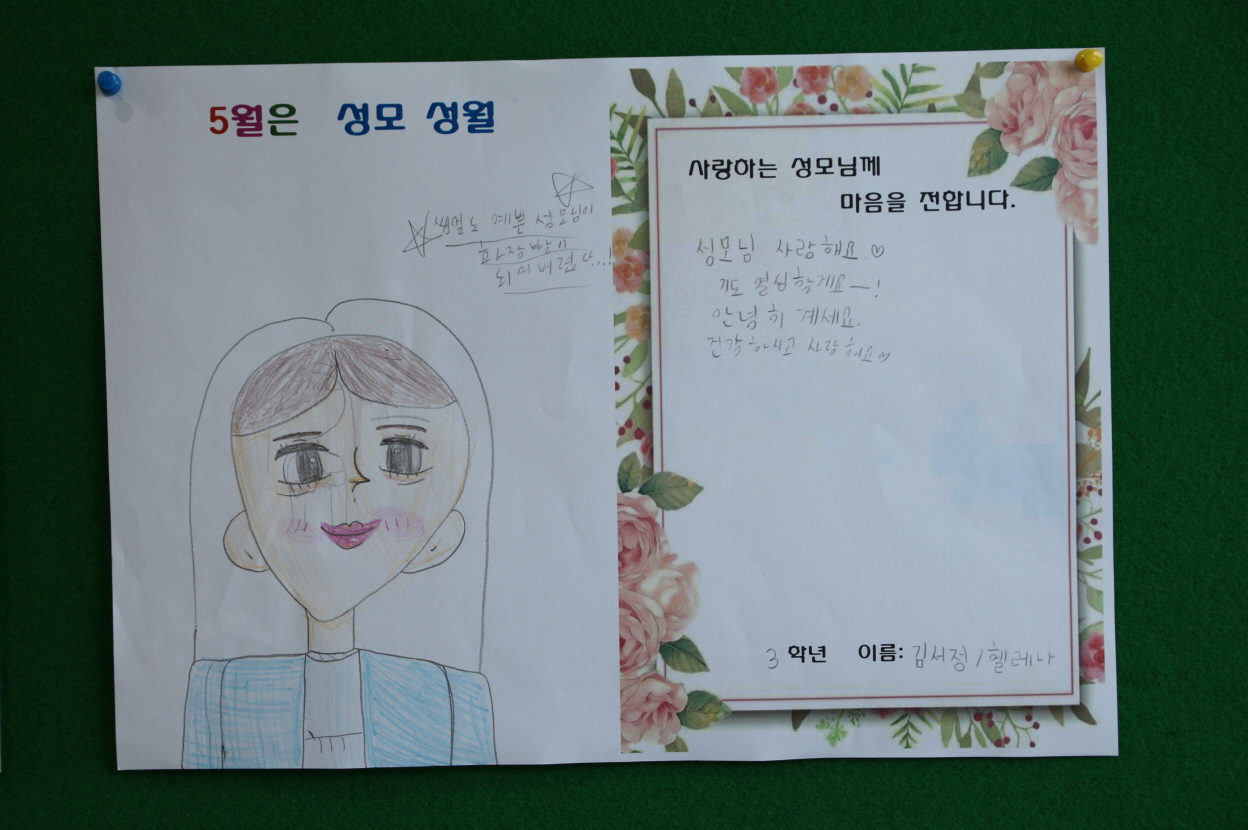 5월은 성모 성월
쌩얼도 예쁜 성모님이
화장빨이
되어버렸다...!
사랑하는 성모님께
마음을 전합니다.
성모님 사랑해요.♡
기도 열심할게요—!
안녕히 계세요.
건강하시고 사랑해요♡
3 학년 이름: 김서정/헬레나